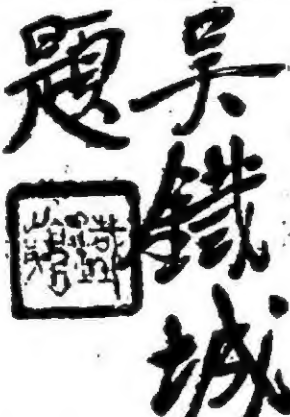 吳鐵城
題